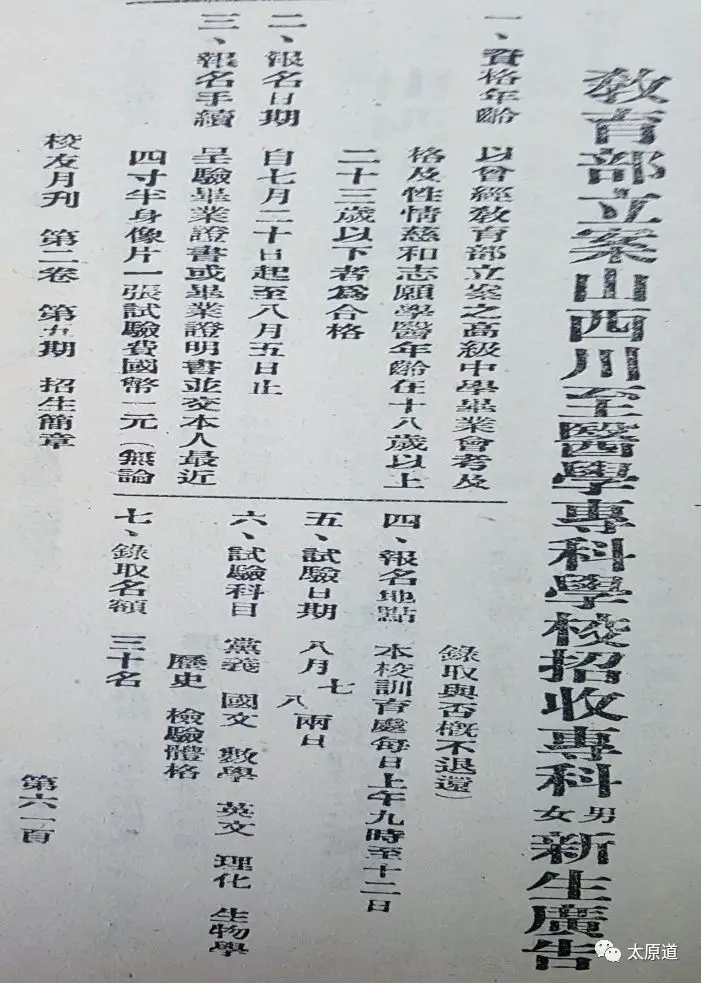 教育部立案山西川至醫學專科學校招收專科男女新生廣告
一、資格年齡 以曾經教育部立案之高級中學畢業會考及
格及性情慈和志願學醫年齡在十八歲以上
二十三歲以下者爲合格
二、報名日期 自七月二十日起至八月五日止
三、報名手續 呈驗畢業證書或畢業證明書並交本人最近
四寸半身像片一張試驗費國幣二元(無論
錄取與否概不退還)
四、報名地點 本校訓育處每日上午九時至十二日
五、試驗日期 八月七八兩日
六、試驗科目 黨義 國文 數學 英文 理化 生物學
歷史 檢驗體格
七、錄取名額 三十名
校友月刊 第二卷 第五期 招生簡章
第六一頁
太原道